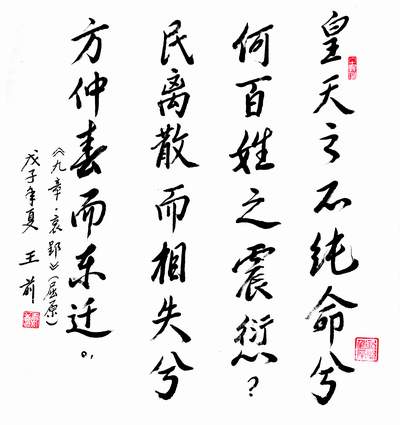 皇天之不纯命兮
何百姓之震愆？
民离散而相失兮
方仲春而东迁。
《九章·哀郢》（屈原）
戊子年夏 王前